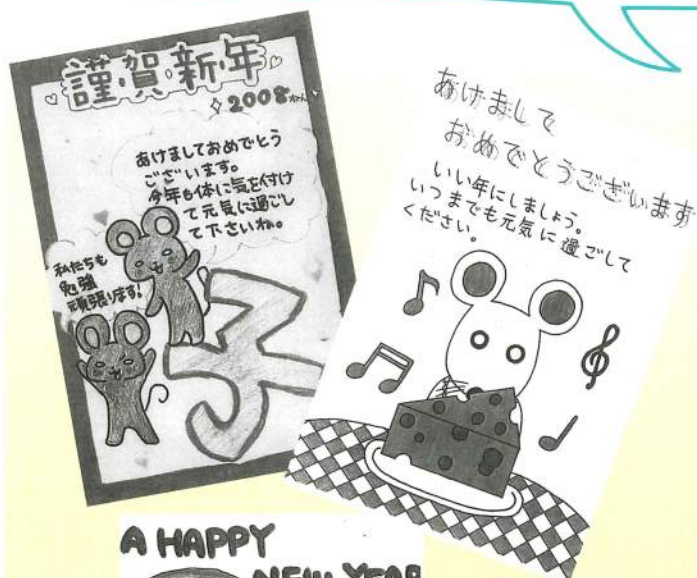 謹賀新年
2008ねん
あけましておめでとう
ございます。
今年も体に気を付け
て元気に過ごし
て下さいね。
私たちも
勉強
頑張ります!
子
あけまして
おめでとうございます
いい年にしましょう。
いつまでも元気に過ごして
ください。
A HAPPY
NEW YEAR